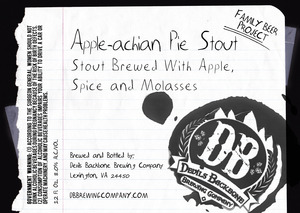 FAMILY BEER
PROJECT
Apple-achian Pie Stout
Stout Brewed With Apple,
Spice and Molasses
Brewed and Bottled by:
Devils Backbone Brewing Company
Lexington, VA 24450
DBBREWINGCOMPANY.COM
DB
DEVILS BACKBONE
BREWING COMPANY
GOVERNMENT WARNING: (1) ACCORDING TO THE SURGEON GENERAL, WOMEN SHOULD NOT
DRINK ALCOHOLIC BEVERAGES DURING PREGNANCY BECAUSE OF THE RISK OF BIRTH DEFECTS.
(2) CONSUMPTION OF ALCOHOLIC BEVERAGES IMPAIRS YOUR ABILITY TO DRIVE A CAR OR
OPERATE MACHINERY AND MAY CAUSE HEALTH PROBLEMS.